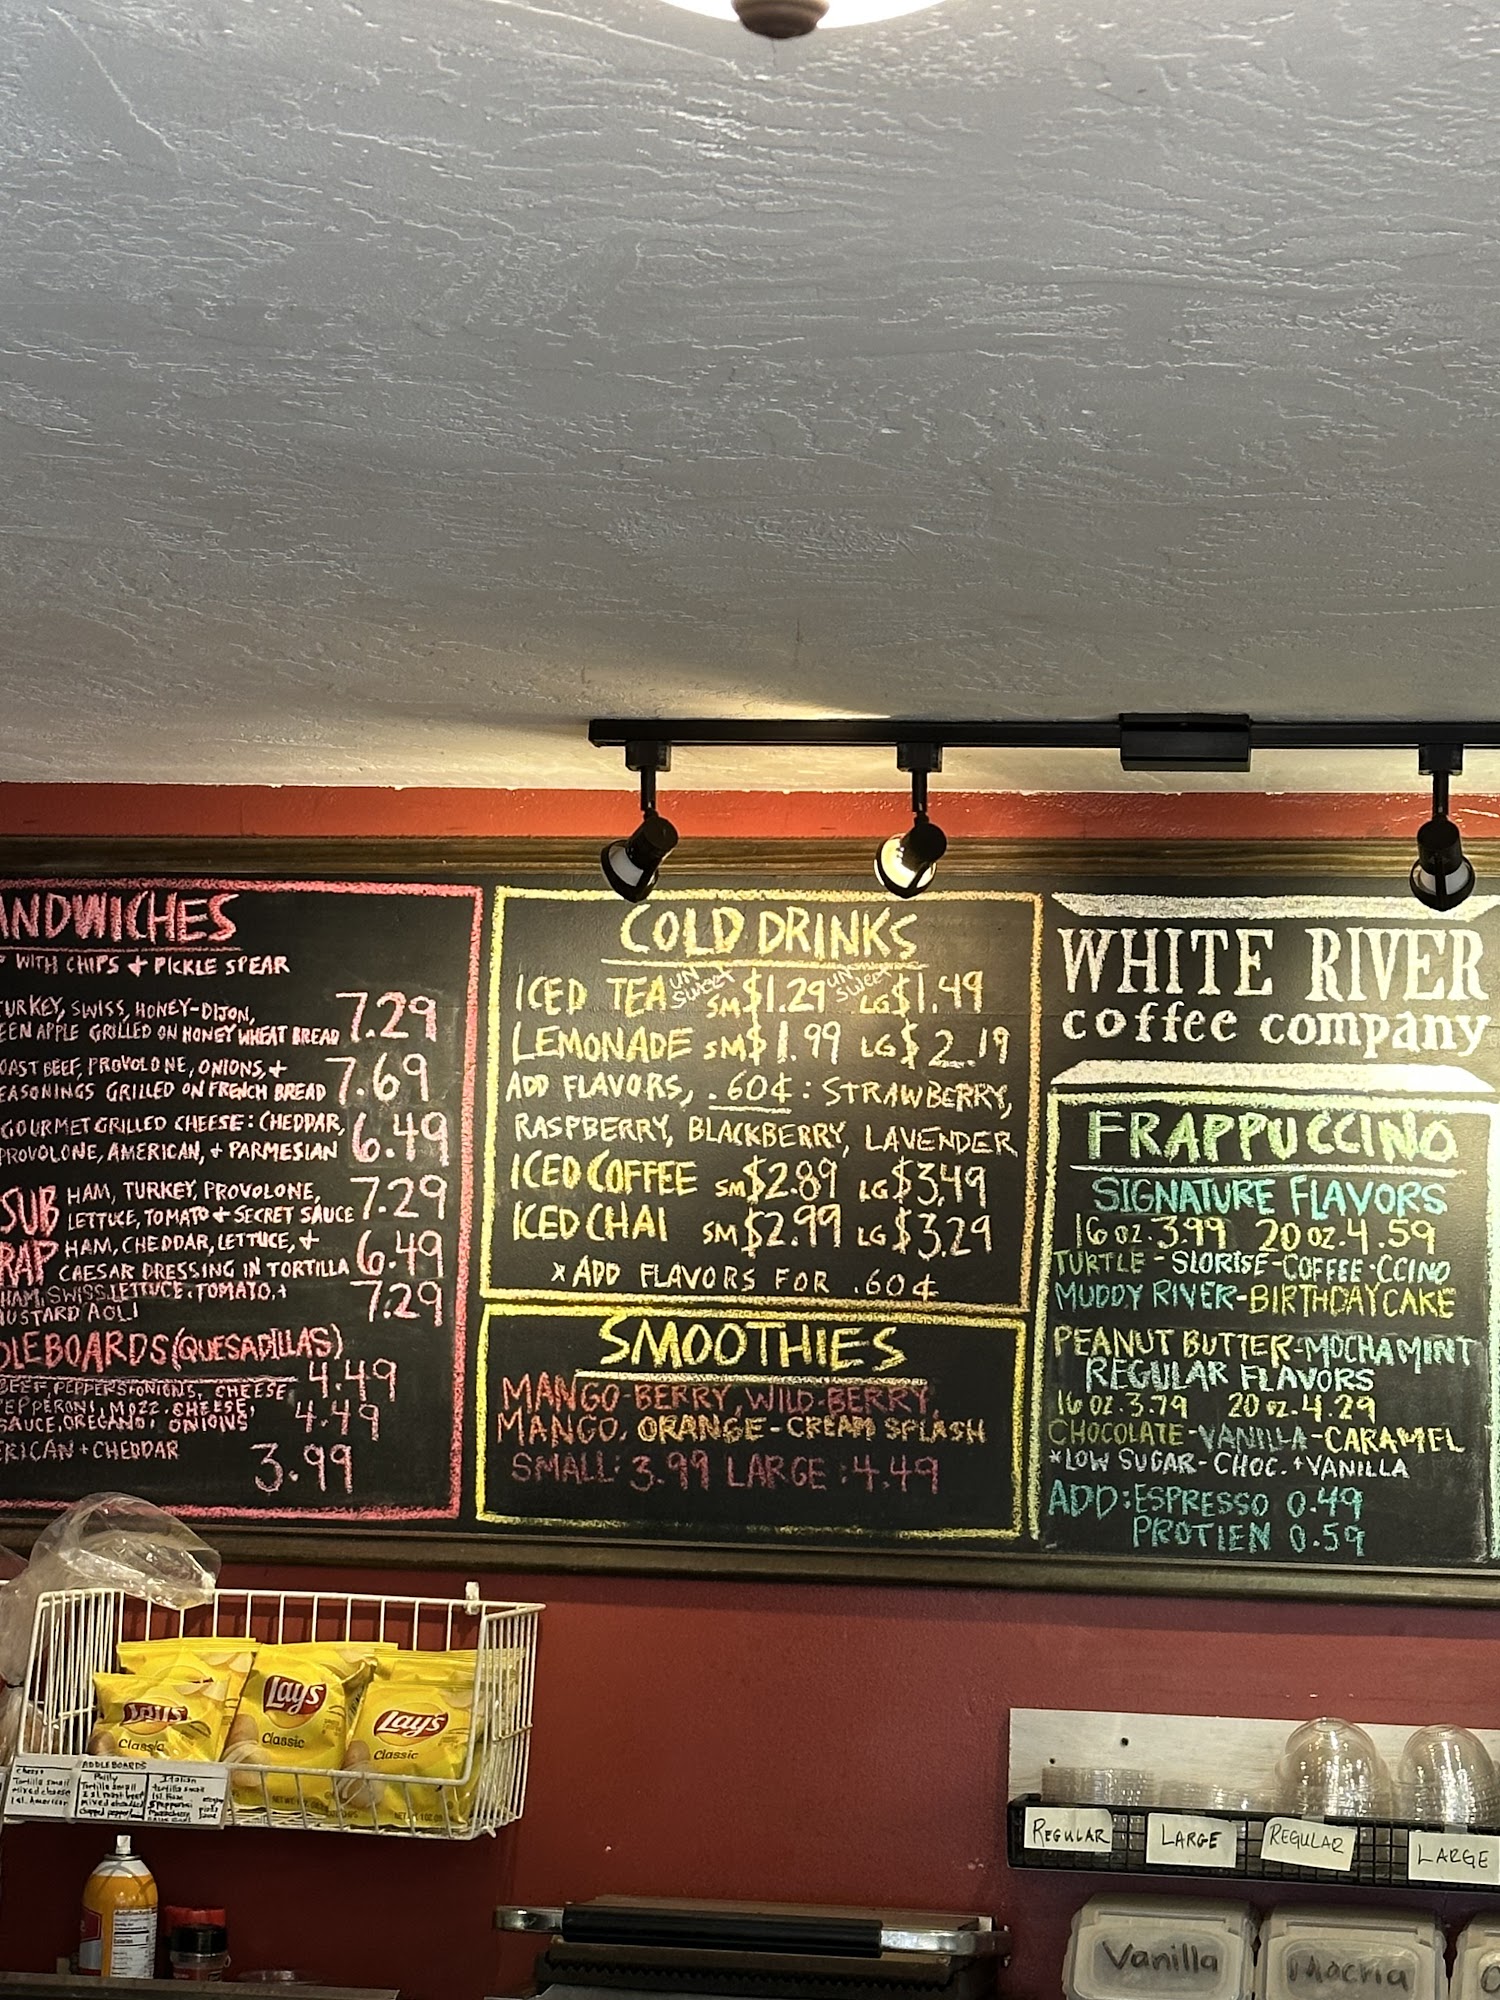 ANDWICHES
WITH CHIPS + PICKLE SPEAR
TURKEY, SWISS, HONEY-DIJON,
EEN APPLE GRILLED ON HONEY WHEAT BREAD 7.29
OAST BEEF, PROVOLONE, ONIONS, +
EASONINGS GRILLED ON FRENCH BREAD 7.69
GOURMET GRILLED CHEESE: CHEDDAR,
PROVOLONE, AMERICAN, + PARMESIAN 6.49
SUB HAM, TURKEY, PROVOLONE,
LETTUCE, TOMATO + SECRET SAUCE 7.29
RAP HAM, CHEDDAR, LETTUCE, +
CAESAR DRESSING IN TORTILLA 6.49
HAM, SWISS, LETTUCE, TOMATO, +
MUSTARD AOLI 7.29
DLEBOARDS (QUESADILLAS)
BEEF, PEPPERS, ONIONS, CHEESE 4.49
PEPPERONI, MOZZ. CHEESE,
SAUCE, OREGANO, ONIONS 4.49
ERICAN + CHEDDAR
3.99
COLD DRINKS
ICED TEA UN SWEET SM $1.29 UN SWEET LG $1.49
LEMONADE SM $1.99 LG $2.19
ADD FLAVORS, .60¢: STRAWBERRY,
RASPBERRY, BLACKBERRY, LAVENDER
ICED COFFEE SM $2.89 LG $3.49
ICED CHAI SM $2.99 LG $3.29
*ADD FLAVORS FOR .60¢
SMOOTHIES
MANGO-BERRY, WILD-BERRY,
MANGO, ORANGE-CREAM SPLASH
SMALL: 3.99 LARGE: 4.49
WHITE RIVER
coffee company
FRAPPUCCINO
SIGNATURE FLAVORS
16 oz. 3.99 20 oz. 4.59
TURTLE - SLORISE - COFFEE-CCINO
MUDDY RIVER - BIRTHDAY CAKE
PEANUT BUTTER - MOCHA MINT
REGULAR FLAVORS
16 oz. 3.79 20 oz. 4.29
CHOCOLATE - VANILLA - CARAMEL
*LOW SUGAR - CHOC. + VANILLA
ADD: ESPRESSO 0.49
PROTIEN 0.59
Lay's
Classic
Lay's
Classic
Lay's
Classic
ADDLEBOARDS
cheese
Tortilla small
mixed cheese
1 sl. American
Philly
Tortilla small
Italian
tortilla small
REGULAR
LARGE
REGULAR
LARGE
Vanilla